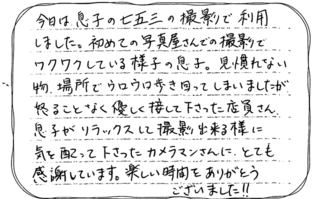 今日は息子の七五三の撮影で利用
しました。初めての写真屋さんでの撮影で
ワクワクしている様子の息子。見慣れない
物、場所でウロウロ歩き回ってしまいましたが
怒ることなく優しく接して下さった店員さん、
息子がリラックスして撮影出来る様に
気を配って下さったカメラマンさんに、とても
感謝しています。楽しい時間をありがとう
ございました!!